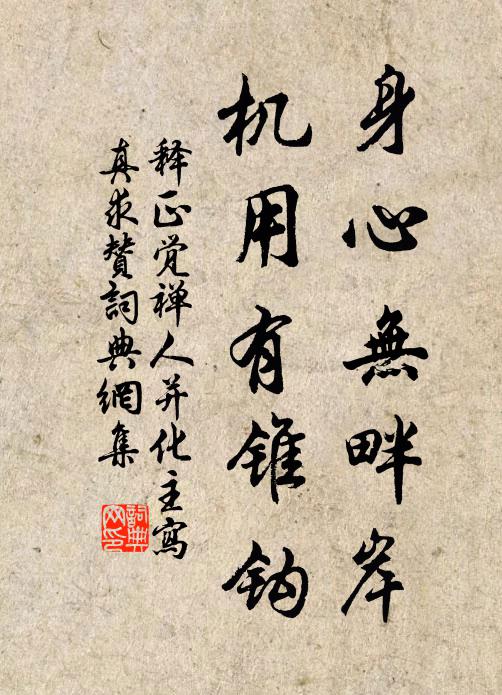 身心無畔岸
机用有锥钩
释正觉禅人并化主寫
真求赞詞典網集
詞典网印